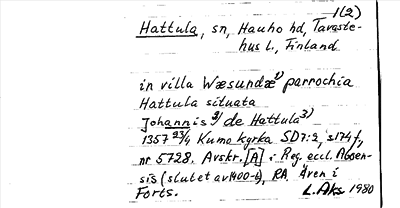 1(2)
Hattula, sn, Hauho hd, Tavaste-
hus l., Finland
in villa Wæsundæ 1) parrochia
Hattula situata
Johannis 2) de Hattula 3)
1357 23/4 Kumo kyrka SD 7:2, s 174 f,
nr 5728. Avskr. [A] i Reg. eccl. Aboen-
sis (slutet av 1400-t), RA. Även i
Forts. L. Aks 1980